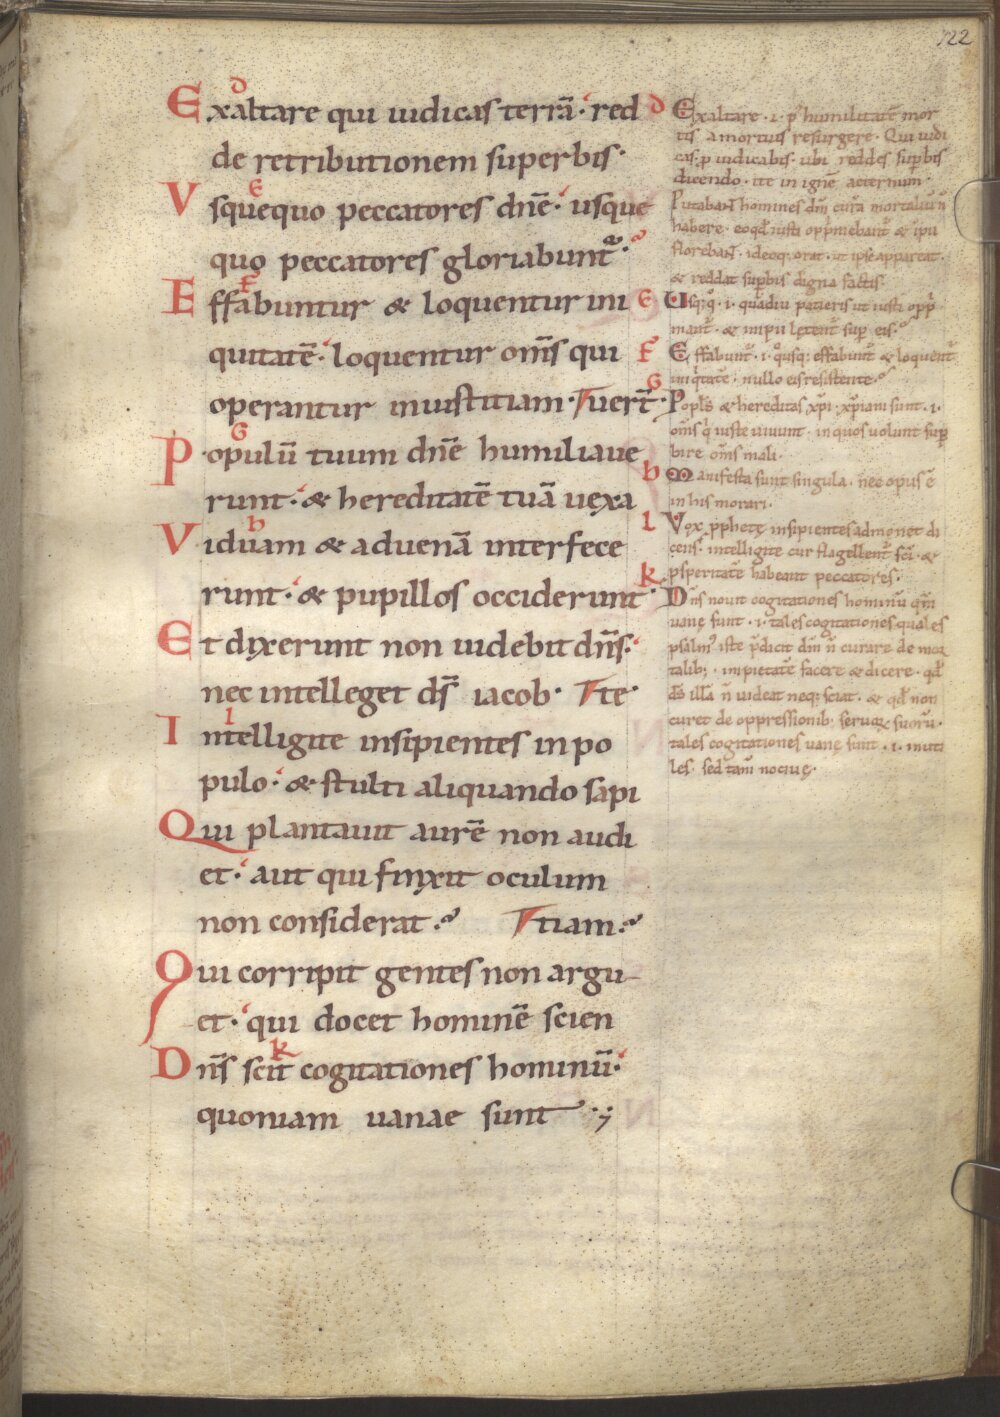 122
Exaltare qui iudicas terrā· red
de retributionem superbis·
Vsquequo peccatores dn̄e· usque
quo peccatores gloriabunt᷒·
Effabuntur & loquentur ini
quitatē· loquentur om̄s qui
operantur iniustitiam· uert̄·
Populū tuum dn̄e humiliaue
runt· & hereditatē tuā uexa
Viduam & aduenā interfece
runt· & pupillos occiderunt·
Et dixerunt non uidebit dn̄s·
nec intelleget ds̄ iacob· te·
Intelligite insipientes in po
pulo· & stulti aliquando sapi
Qui plantauit aurē non audi
et· aut qui finxit oculum
non considerat· tiam·
Qui corripit gentes non argu
et· qui docet hominē scien
Dn̄s scit cogitationes hominū·
quoniam uanae sunt·
d Exaltare· i· p' humilitatē mor
tis a mortuis resurgere· Qui iudi
cas· p̄ iudicabis· ubi reddes sup̄bis
dicendo· ite in ignē aeternum·
Putabant homines dm̄ cura mortaliū n̄
habere· eoqd̄ iusti opp̄mebant̄ & ip̄ii
florebant· ideoq; orat· ut ipse appareat·
& reddat sup̄bis digna factis·
E Vsq;q̊· i· quādiu patieris ut iusti opp̄
mant̄· & impii lętent̄ sup̄ eis·
F Effabunt̄· i· q̊usq; effabunt̄ & loquent̄
iniq̇tatē· nullo eis resistente·
G Popl̄s & hereditas xp̄i· xp̄iani sunt· i·
om̄s q̇ iuste uiuunt· in quos uolunt sup̄
bire om̄s mali·
h Manifesta sunt singula· nec opus ē
in his morari·
I Vox p̄phetę insipientes admonet di
cens· intelligite cur flagellent̄ sc̄i· &
p̄speritatē habeant peccatores·
K Dn̄s nouit cogitationes hominū qm̄
uanę sunt· i· tales cogitationes quales
psalm' iste p̄dicit dm̄ n̄ curare de mor
talib;· impietatē facere & dicere· qd̄
ds̄ illā n̄ uideat neq; sciat· & qd̄ non
curet de oppressionib; seruoꝝ suorū·
tales cogitationes uanę sunt· i· inuti
les· sed tam̄ nociuę·